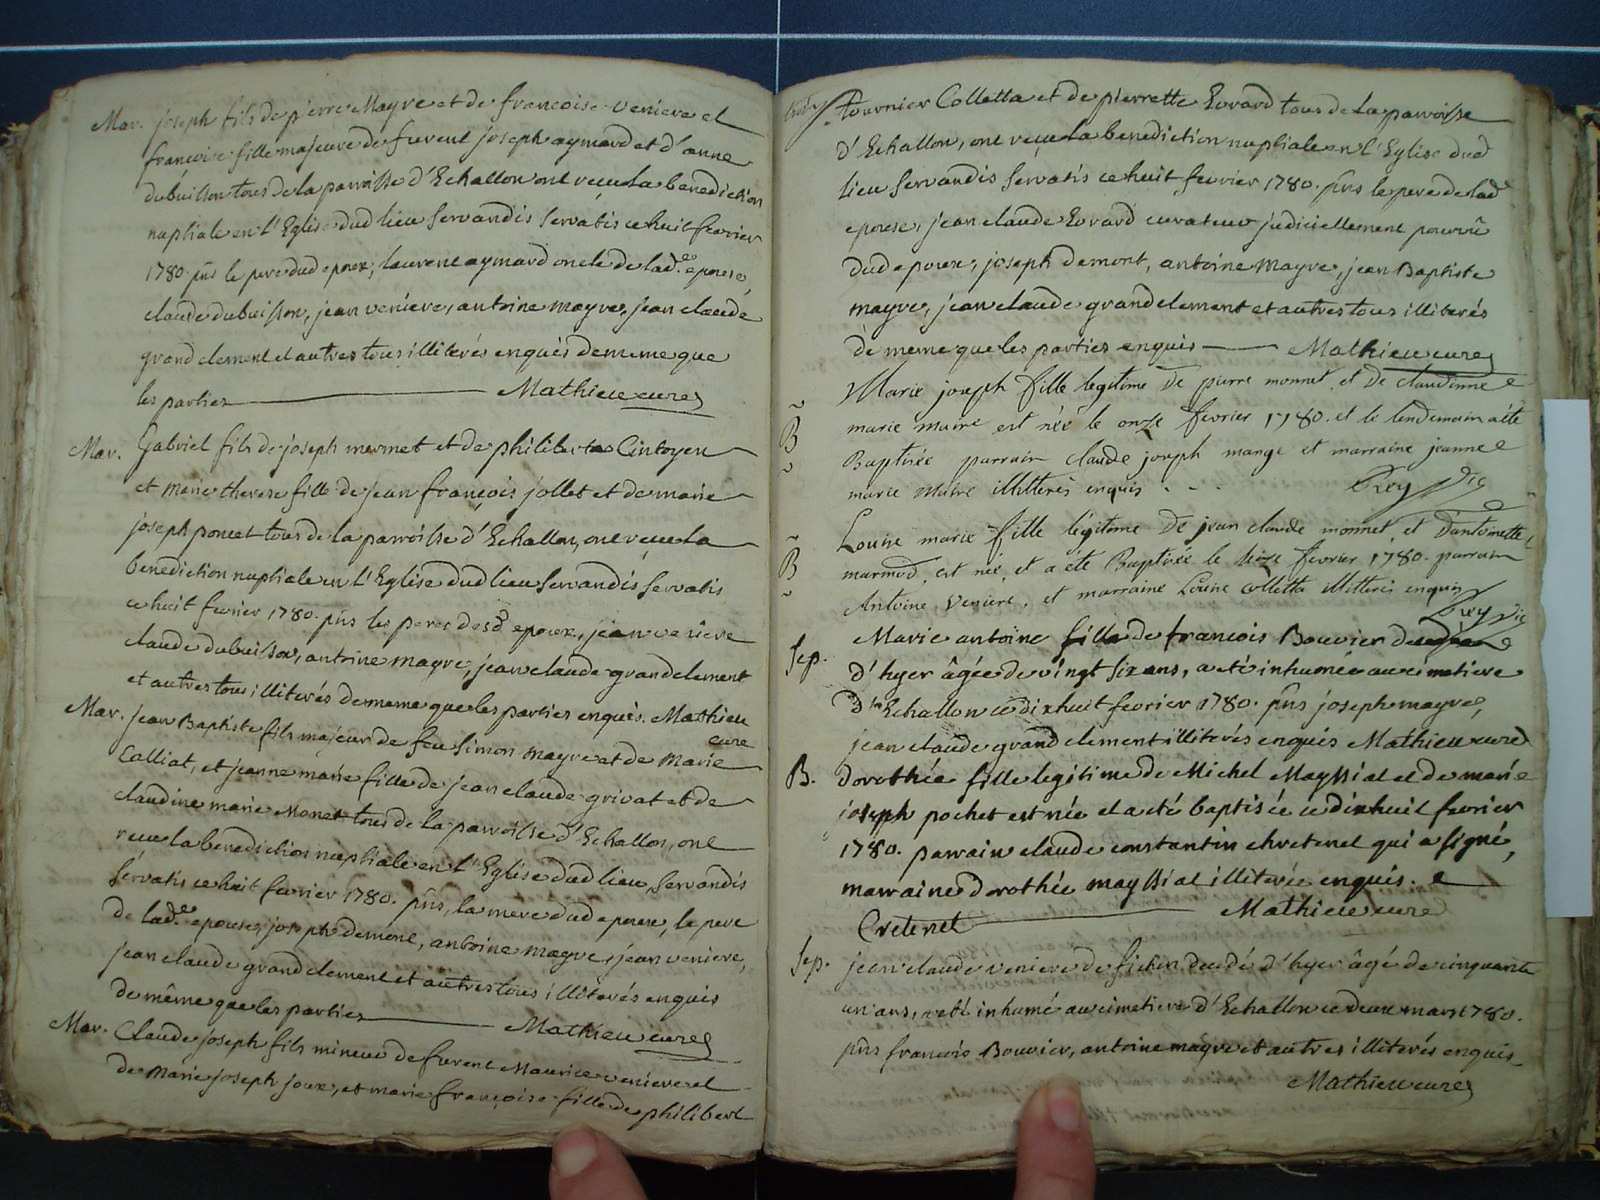 Mar. joseph fils de pierre Mayre et de francoise veniere et
francoise fille majeure de furent joseph aymard et d'anne
dubuisson tous de la parroisse d'Echallon ont reçu la benediction
nuptiale en l'Eglise dud lieu servandis servatis ce huit fevrier
1780. pns le pere dud epoux, laurent aymard oncle de lad.e epouse,
claude dubuisson, jean veniere, antoine mayre, jean claude
grand clement et autres tous illiterés enquis de meme que
les parties Mathieu curé
Mar. Gabriel fils de joseph mermet et de philiberte Cintoyen
et marie therese fille de jean françois jollet et de marie
joseph poncet tous de la parroisse d'Echallon, ont reçeu la
benediction nuptiale en l'Eglise dud lieu servandis servatis
ce huit fevrier 1780. pns les peres desd epoux, jean veniere
claude dubuisson, antoine mayre, jean claude grand clement
et autres tous illiterés de meme que les parties enquis. Mathieu
curé
Mar. jean Baptiste fils majeur de feu simon mayre et de Marie
Calliat, et jeanne marie fille de jean claude grivat et de
claudine marie Monet tous de la parroisse d'Echallon, ont
reçu la benediction nuptiale en l'Eglise dud lieu, servandis
servatis ce huit fevrier 1780. pns, la mere dud epoux, le pere
de lad.e epouse, joseph demont, antoine mayre, jean veniere,
jean claude grand clement et autres tous illiterés enquis
de même que les parties Mathieu curé
Mar. Claude joseph fils mineur de furent Maurice veniere et
de Marie joseph joux, et marie françoise fille de philibert
tournier Colletta et de pierrette Evrard tous de la parroisse
d'Echallon, ont reçu la benediction nuptiale en l'Eglise dud
lieu servandis servatis ce huit fevrier 1780. pns le pere de lad
epouse, jean claude Evrard curateur judiciellement pourvû
dud epoux, joseph demont, antoine mayre, jean Baptiste
mayre, jean claude grand clement et autres tous illiterés
de meme que les parties enquis Mathieu curé
B Marie joseph fille legitime de pierre monnet et de claudine
marie maire est née le onze fevrier 1780. et le lendemain a été
Baptisée parrain claude joseph mange et marraine jeanne
marie maire illitterés enquis . . . Rey vic
B Louise marie fille légitime de jean claude monnet, et d'antoinette
marmod, est née, et a été Baptisée le seize fevrier 1780. parrain
Antoine Veniere, et marraine Louise Colletta illitterés enquis
Rey vic
Sep. Marie antoine fille de francois Bouvier
d'hyer âgée de vingt six ans, a eté inhumée au cimetiere
d'Echallon ce dixhuit fevrier 1780. pns joseph mayre,
jean claude grand clement illiterés enquis Mathieu curé
B. dorothée fille legitime de Michel Mayssiat et de marie
joseph pochet est née et a eté baptisée ce dixhuit fevrier
1780. parrain claude constantin chretenet qui a signé,
marraine dorothée mayssiat illiterée enquis.
Cretenet Mathieu curé
Sep. jean claude veniere de sieten decedé d'hyer âgé de cinquante
un ans, a eté inhumé au cimetiere d'Echallon ce deux mars 1780.
pns francois Bouvier, antoine mayre et autres illiterés enquis
Mathieu curé